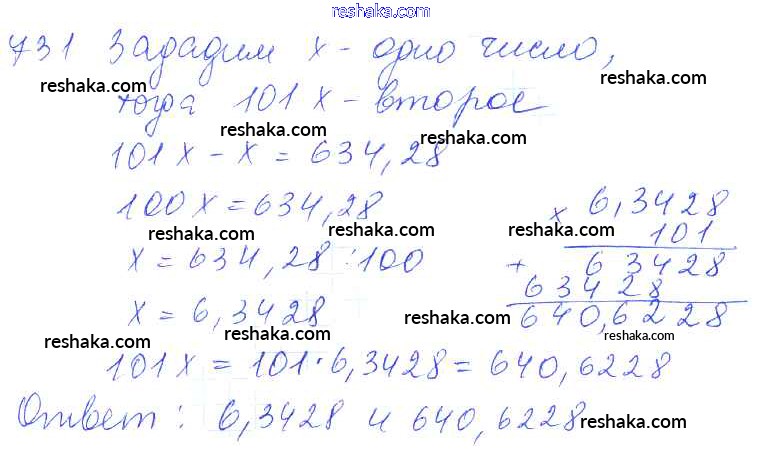 reshaka.com
731 Зададим х - одно число,
reshaka.com reshaka.com
тогда 101 х - второе
reshaka.com reshaka.com
101 х - х = 634,28
100 х = 634,28
reshaka.com reshaka.com
х = 634,28 : 100
х = 6,3428
reshaka.com reshaka.com
х 6,3428
101
+ 63428
63428
640,6228
101 х = 101 · 6,3428 = 640,6228
reshaka.com reshaka.com
Ответ: 6,3428 и 640,6228
reshaka.com reshaka.com